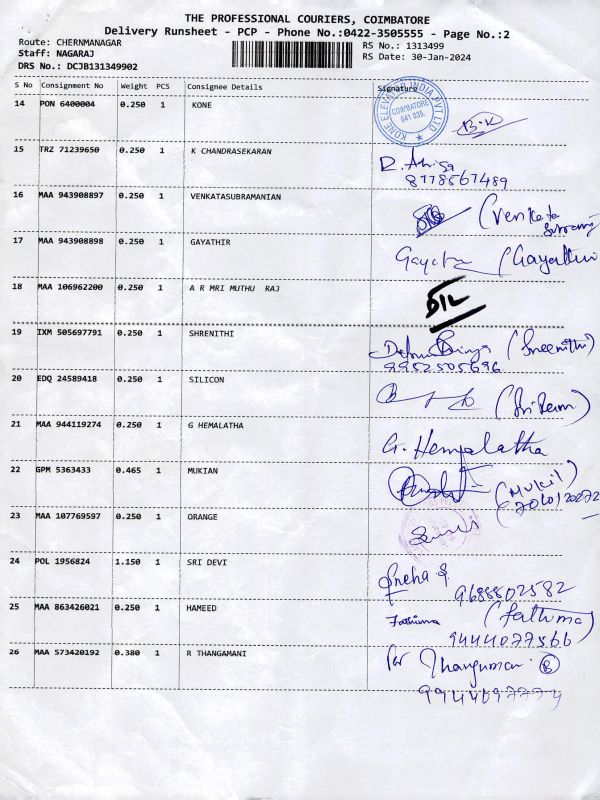 THE PROFESSIONAL COURIERS, COIMBATORE
Delivery Runsheet - PCP - Phone No.:0422-3505555 - Page No.:2
Route: CHERNMANAGAR
RS No.: 1313499
Staff: NAGARAJ
RS Date: 30-Jan-2024
DRS No.: DCJB131349902
S No Consignment No Weight PCS Consignee Details Signature
14 PON 6400004 0.250 1 KONE
KONE ELEVATOR INDIA PVT LTD
COIMBATORE
641 035.
B.K
15 TRZ 71239650 0.250 1 K CHANDRASEKARAN
8778567489
16 MAA 943908897 0.250 1 VENKATASUBRAMANIAN
(Venkata
17 MAA 943908898 0.250 1 GAYATHIR
(Gayathri
18 MAA 106962200 0.250 1 A R MRI MUTHU RAJ
19 IXM 505697791 0.250 1 SHRENITHI
(Sreenithi)
9952505696
20 EDQ 24589418 0.250 1 SILICON
(Sri Ram)
21 MAA 944119274 0.250 1 G HEMALATHA
G. Hemalatha
22 GPM 5363433 0.465 1 MUKIAN
(Mukil)
23 MAA 107769597 0.250 1 ORANGE
24 POL 1956824 1.150 1 SRI DEVI
Sneha S.
9688802582
25 MAA 863426021 0.250 1 HAMEED
Fathima (Fathima)
9444077566
26 MAA 573420192 0.380 1 R THANGAMANI